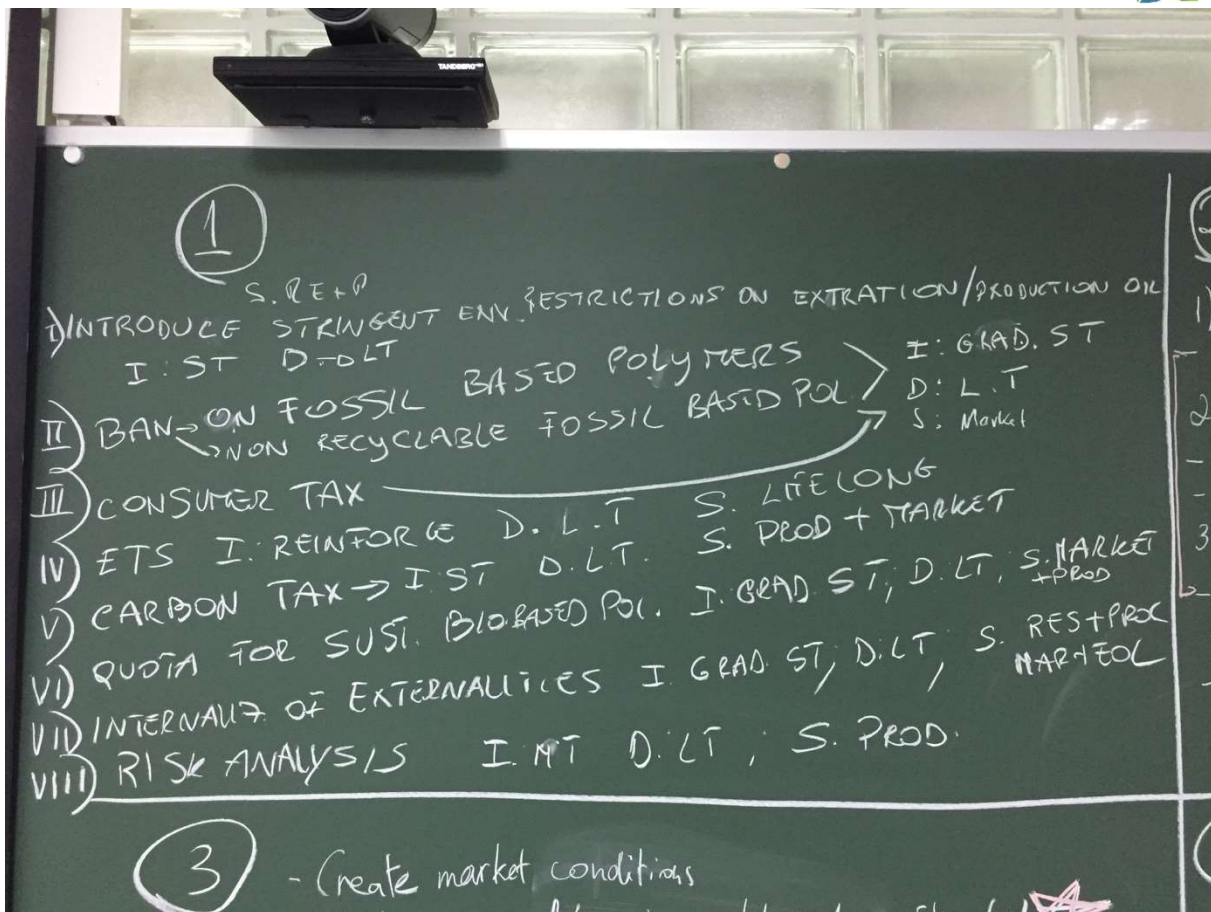 TANDBERG
1
S. RE+P
I) INTRODUCE STRINGENT ENV. RESTRICTIONS ON EXTRATION/PRODUCTION OIL
I: ST D→LT
II) BAN → ON FOSSIL BASED POLYMERS
→ NON RECYCLABLE FOSSIL BASED POL
I: GRAD. ST
D: L.T
S: Market
III) CONSUMER TAX
IV) ETS I. REINFORCE D. L.T S. LIFELONG
V) CARBON TAX → I. ST D. L.T. S. PROD + MARKET
VI) QUOTA FOR SUST. BIOBASED POL. I. GRAD. ST, D. LT, S. MARKET
+PROD
VII) INTERNALIZ. OF EXTERNALLITICES I GRAD. ST, D: LT, S. RES+PROC
MAR+EOL
VIII) RISK ANALYSIS I. MT D: LT, S. PROD.
3
- Create market conditions
2
1)
2
-
-
3
-